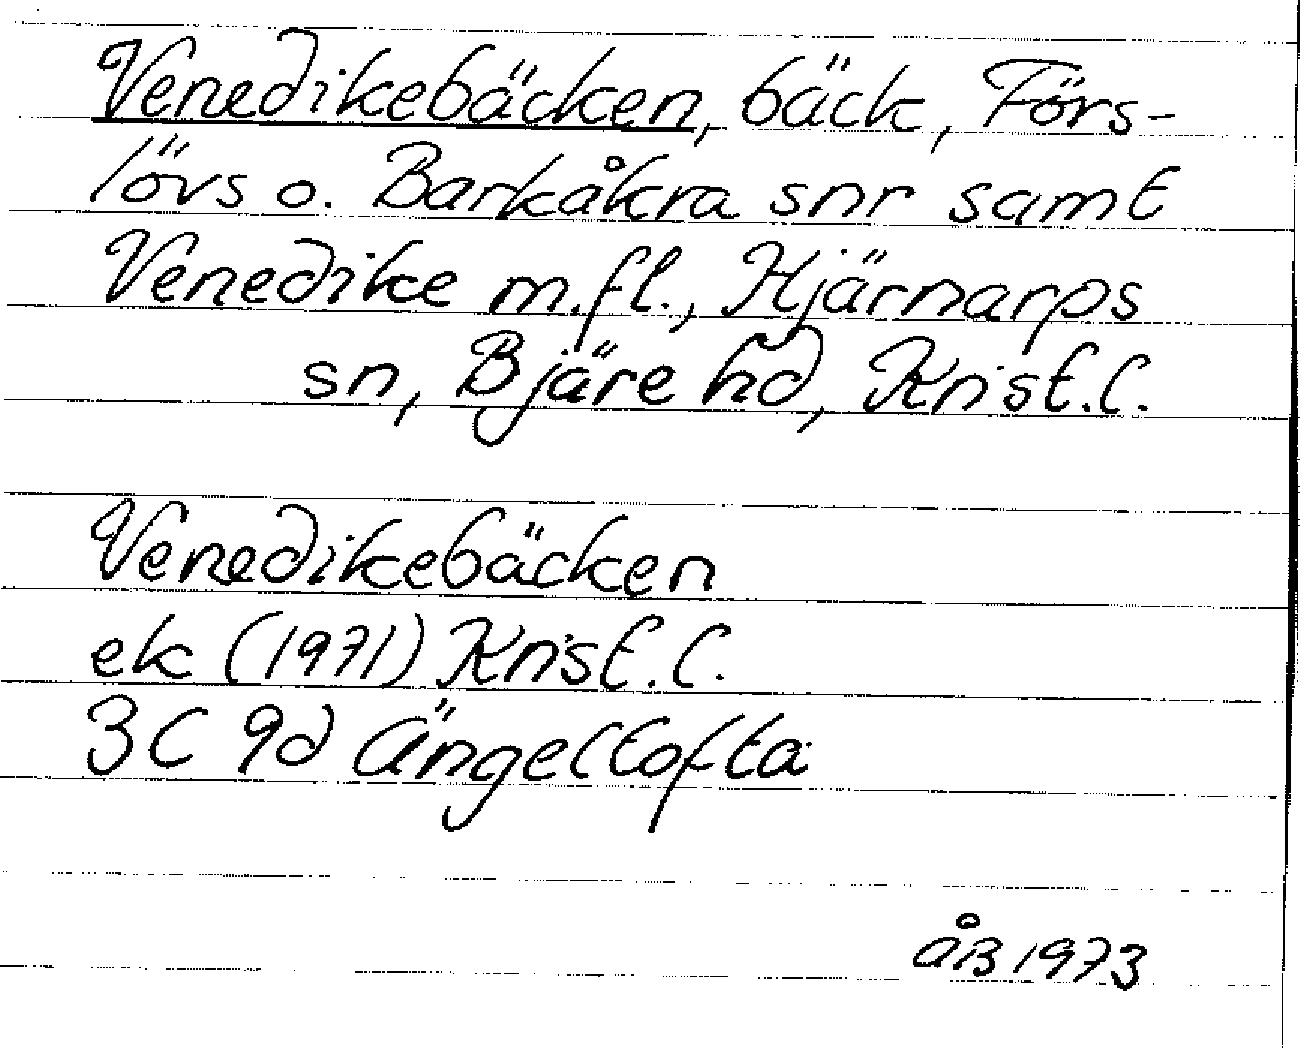 Venedikebäcken, bäck, Förs-
lövs o. Barkåkra snr samt
Venedike m.fl., Hjärnarps
sn, Bjäre hd, Krist.l.
Venedikebäcken
ek (1971) Krist.l.
3C 9d Ängeltofta
ÅB 1973